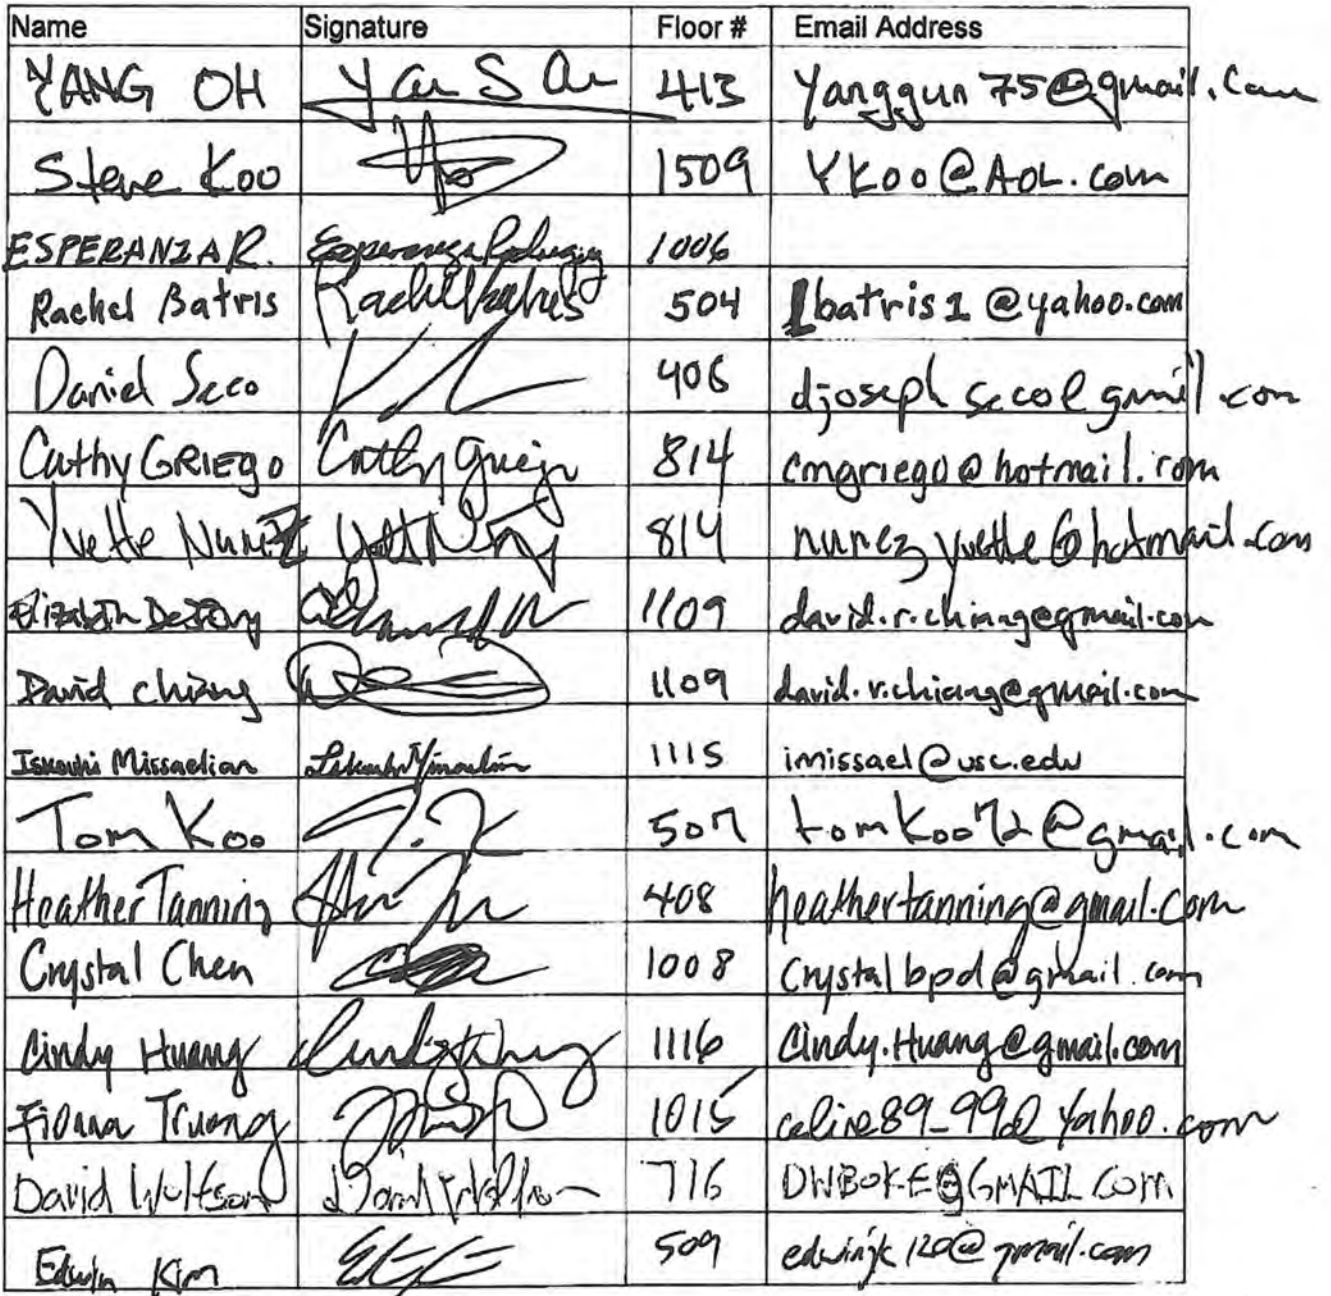 Name Signature Floor # Email Address
YANG OH 413 Yanggun75@gmail.com
Steve Koo 1509 YKoo@AOL.com
ESPERANZA R. Esperanza Rodriguez 1006
Rachel Batris Rachel Batris 504 lbatris1@yahoo.com
Daniel Seco 406 djosephseco@gmail.com
Cathy GRIEGO Cathy Griego 814 cmgriego@hotmail.com
Yvette Nunez 814 nunezyvette@hotmail.com
Elizabeth 1109 david.r.chiang@gmail.com
David chiang 1109 david.r.chiang@gmail.com
Iskouhi Missaelian 1115 imissael@usc.edu
Tom Koo T. K 507 tomKoo72@gmail.com
Heather Tanning 408 heathertanning@gmail.com
Crystal Chen 1008 Crystalbpd@gmail.com
Cindy Huang Cindy Huang 1116 Cindy.Huang@gmail.com
Fionna Truong 1015 celine89_99@yahoo.com
David Wolfson David Wolfson 716 DWBOKE@GMAIL.COM
Edwin Kim 509 edwinjk120@gmail.com